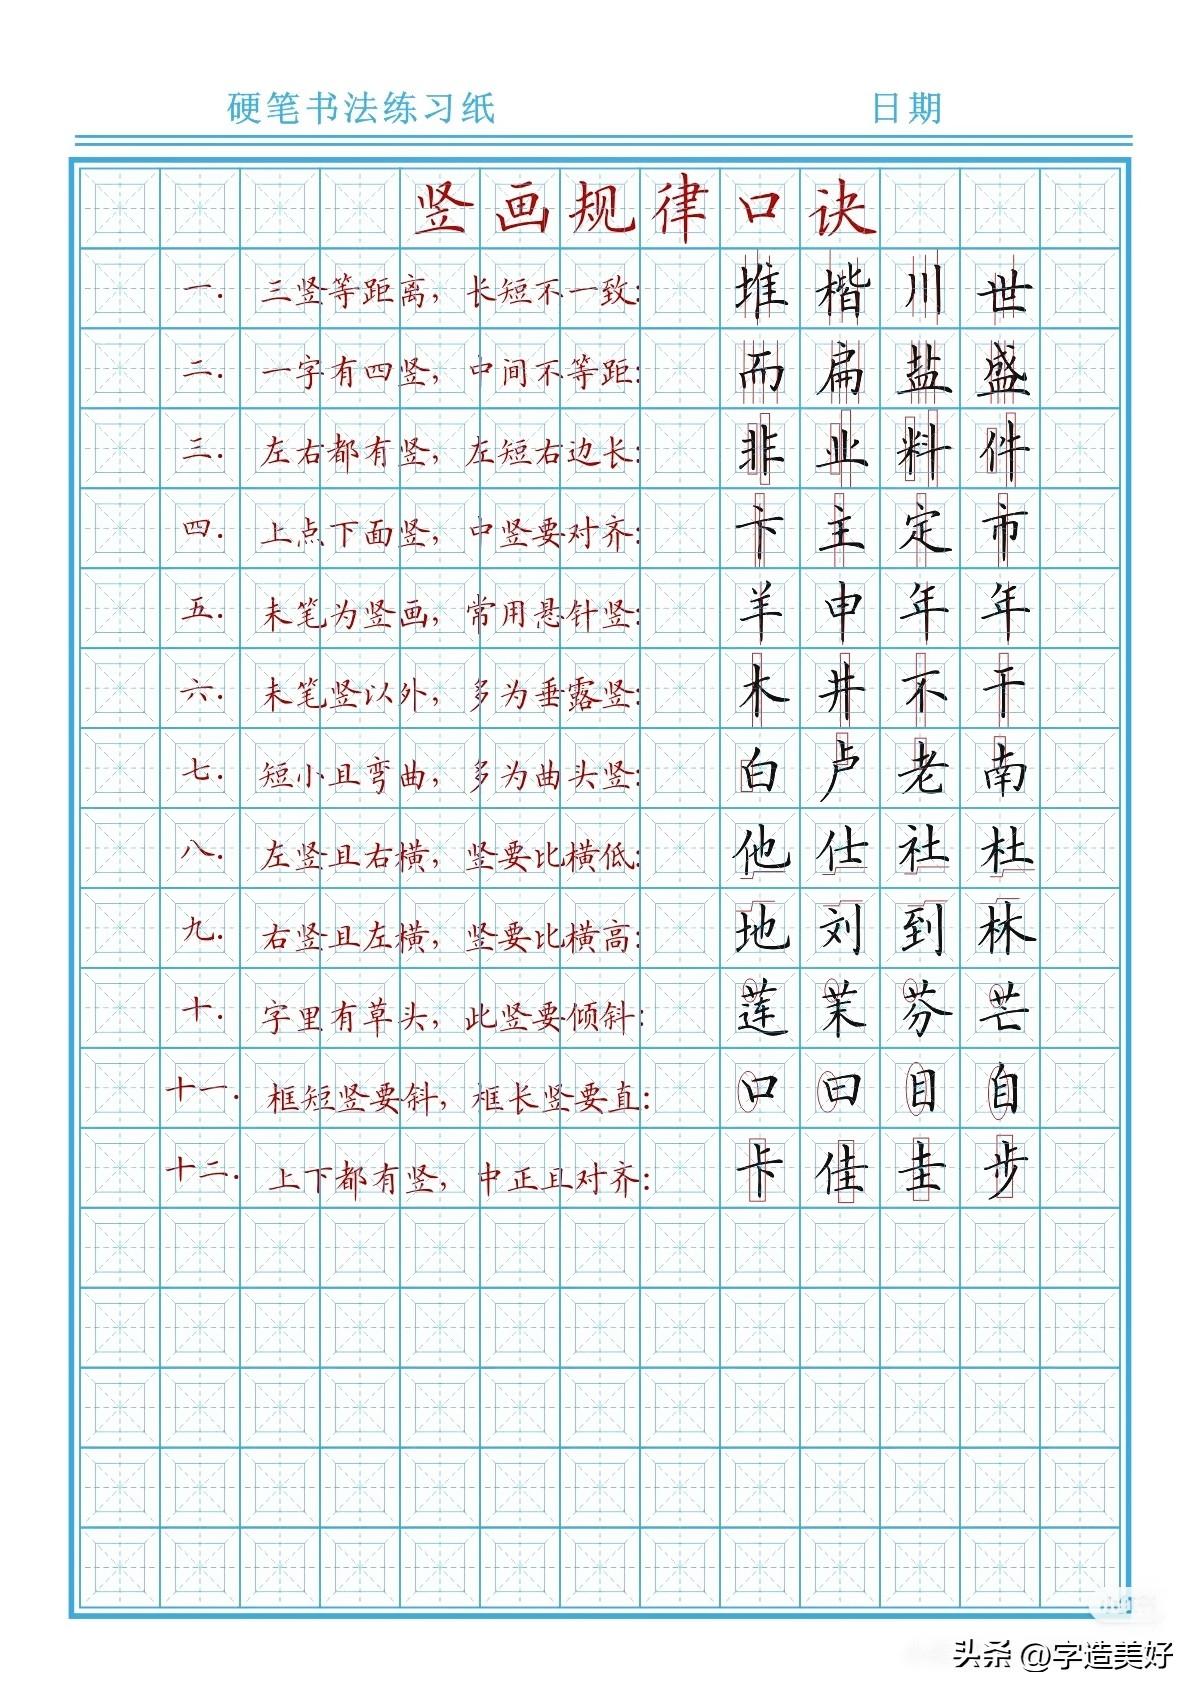 硬笔书法练习纸 日期
竖画规律口诀
一. 三竖等距离，长短不一致: 堆 楷 川 世
二. 一字有四竖，中间不等距: 而 扁 盐 盛
三. 左右都有竖，左短右边长: 非 业 料 件
四. 上点下面竖，中竖要对齐: 卞 主 定 市
五. 末笔为竖画，常用悬针竖: 羊 申 年 年
六. 末笔竖以外，多为垂露竖: 木 井 不 干
七. 短小且弯曲，多为曲头竖: 白 卢 老 南
八. 左竖且右横，竖要比横低: 他 仕 社 杜
九. 右竖且左横，竖要比横高: 地 刘 到 林
十. 字里有草头，此竖要倾斜: 莲 茉 芬 芒
十一. 框短竖要斜，框长竖要直: 口 曰 目 自
十二. 上下都有竖，中正且对齐: 卡 佳 圭 步
头条 @字造美好